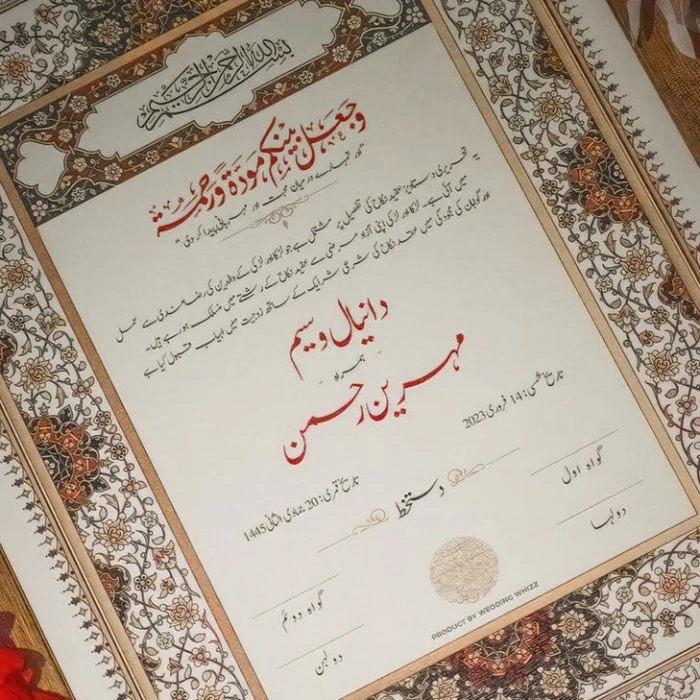 بسم الله الرحمن الرحيم
وجعل بينكم مودة ورحمة
"اور تمہارے درمیان محبت اور مہربانی پیدا کر دی"
یہ تحریری دستاویز عقیدِ نکاح کی تفصیل پر مشتمل ہے جو لڑکا اور لڑکی کے والدین کی رضامندی سے عمل
میں آئی ہے۔ لڑکا اور لڑکی اپنی آزاد مرضی سے عقیدِ نکاح کے رشتے میں منسلک ہو رہے ہیں۔
اور گواہان کی موجودگی میں عقدِ نکاح کی شرعی شرائط کے ساتھ زوجیت میں ایجاب و قبول کیا ہے
دانیال وسیم
- ہمراہ -
مہرین رحمن
تاریخ شمسی: 14 فروری 2023
تاریخ قمری: 20 جمادی الثانی 1445
دستخط
گواہ اول
دولہا
گواہ دوئم
دولہن
PRODUCT BY WEDDING WHIZZ